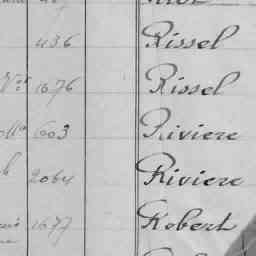 436 Rissel
1676 Rissel
603 Riviere
2064 Riviere
1677 Robert